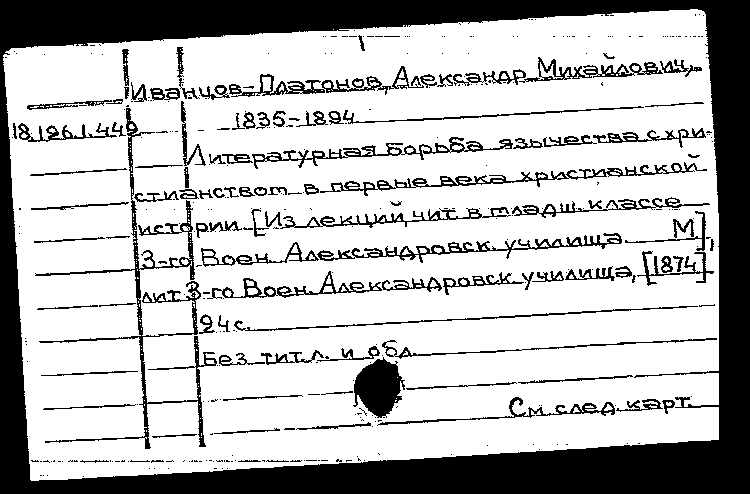 Иванцов-Платонов, Александр Михайлович,
18.196.1.449 1835-1894
Литературная борьба язычества с хри-
стианством в первые века христианской
истории. [Из лекций, чит. в младш. классе
3-го Воен. Александровск. училища. М],
лит. 3-го Воен. Александровск. училища, [1874]
24 с.
Без тит. л. и обл.
См. след. карт.